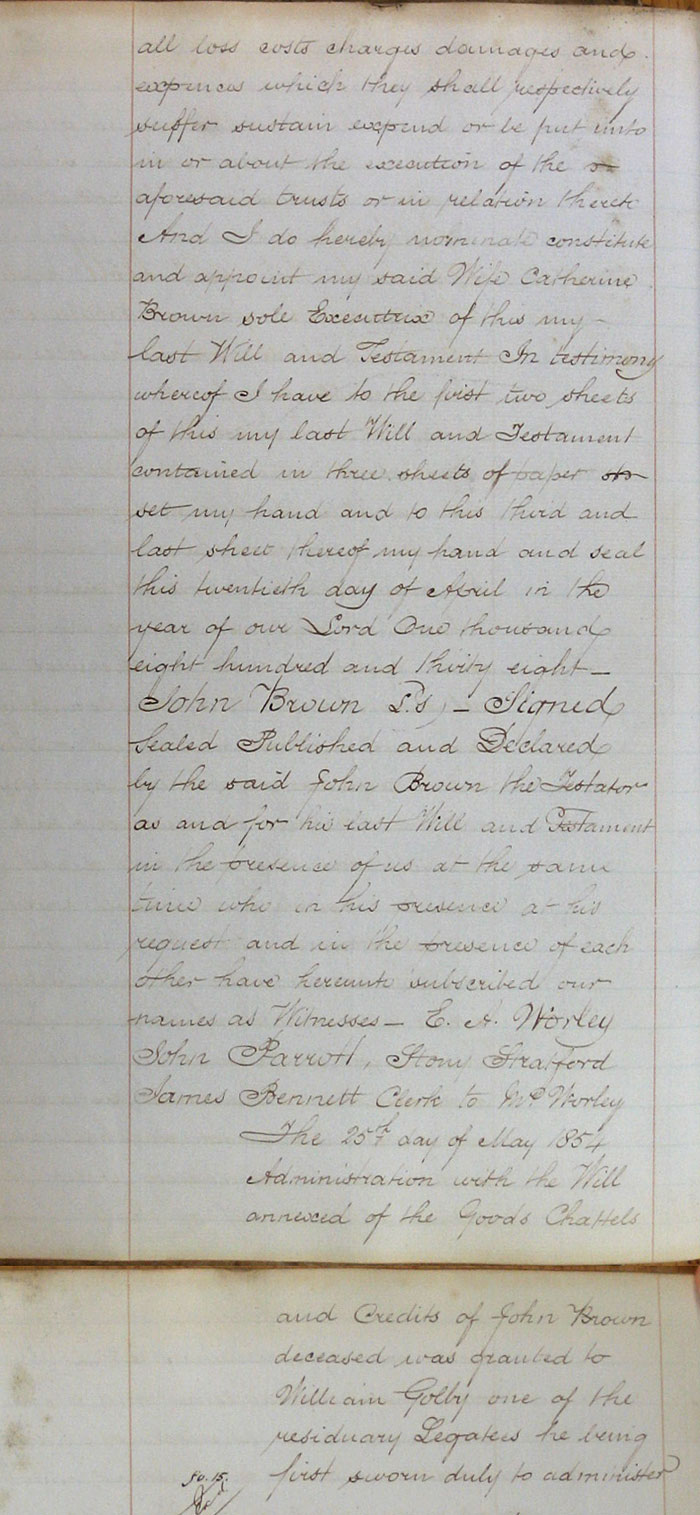 all loss costs charges damages and
expences which they shall respectively
suffer sustain expend or be put unto
in or about the execution of the
aforesaid trusts or in relation thereto
And I do hereby nominate constitute
and appoint my said Wife Catherine
Brown sole Executrix of this my
last Will and Testament In testimony
whereof I have to the first two sheets
of this my last Will and Testament
contained in three sheets of paper
set my hand and to this third and
last sheet thereof my hand and seal
this twentieth day of April in the
year of our Lord One thousand
eight hundred and thirty eight _
John Brown L.s, _ Signed
Sealed Published and Declared
by the said John Brown the Testator
as and for his last Will and Testament
in the presence of us at the same
time who in his presence at his
request and in the presence of each
other have hereunto subscribed our
names as Witnesses _ E. A. Worley
John Parrott, Stony Stratford
James Bennett Clerk to Mr Worley
The 25th day of May 1854
Administration with the Will
annexed of the Goods Chattels
and Credits of John Brown
deceased was granted to
William Golby one of the
residuary Legatees he being
first sworn duly to administer
fo. 15.